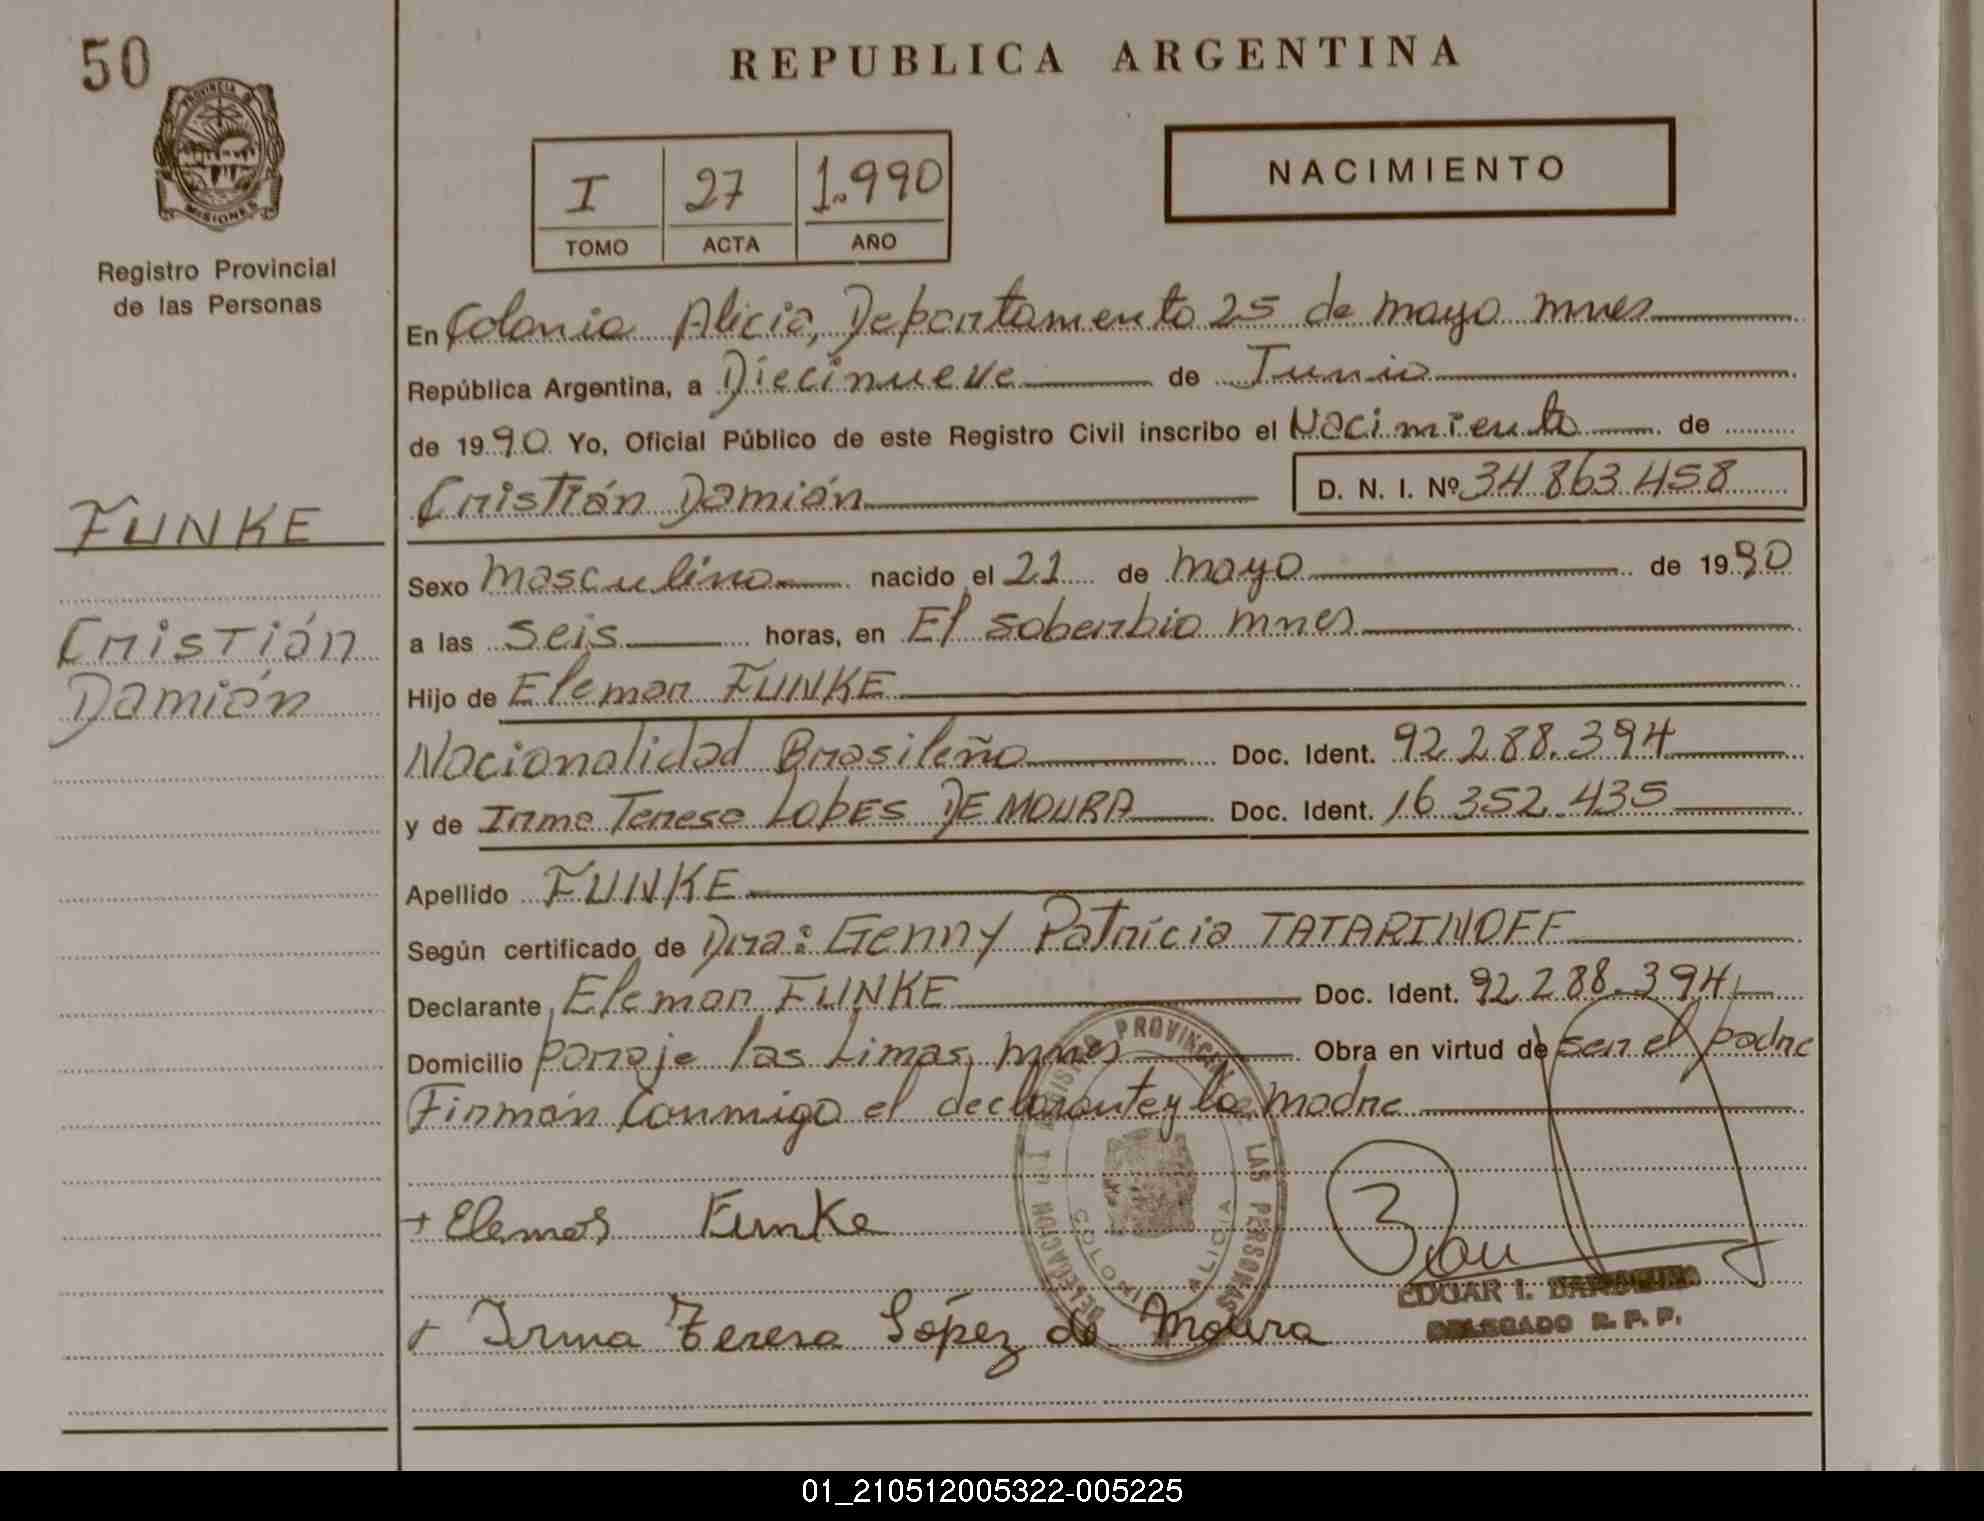 50
REPUBLICA ARGENTINA
PROVINCIA DE
MISIONES
Registro Provincial
de las Personas
I 27 1.990
TOMO ACTA AÑO
NACIMIENTO
En Colonia Alicia, Departamento 25 de mayo mnes
República Argentina, a Diecinueve de Junio
de 1990 Yo, Oficial Público de este Registro Civil inscribo el Nacimiento de
Cristián Damián D. N. I. Nº 34.863.458
FUNKE
Cristián
Damián
Sexo masculino nacido el 21 de mayo de 1990
a las seis horas, en El soberbio mnes
Hijo de Elemar FUNKE
Nacionalidad Brasileña Doc. Ident. 92.288.394
y de Irma Teresa LOPES DE MOURA Doc. Ident. 16.352.435
Apellido FUNKE
Según certificado de Dra: Genny Patricia TATARINOFF
Declarante Elemar FUNKE Doc. Ident. 92.288.394
Domicilio paraje las Limas, mnes Obra en virtud de ser el padre
Firmán Conmigo el declarante y la madre
REGISTRO PROVINCIAL DE LAS PERSONAS
DELEGACION
COLONIA ALICIA
+ Elemar Funke
EDGAR I.
DELEGADO R. P. P.
+ Irma Teresa López de Moura
01_210512005322-005225